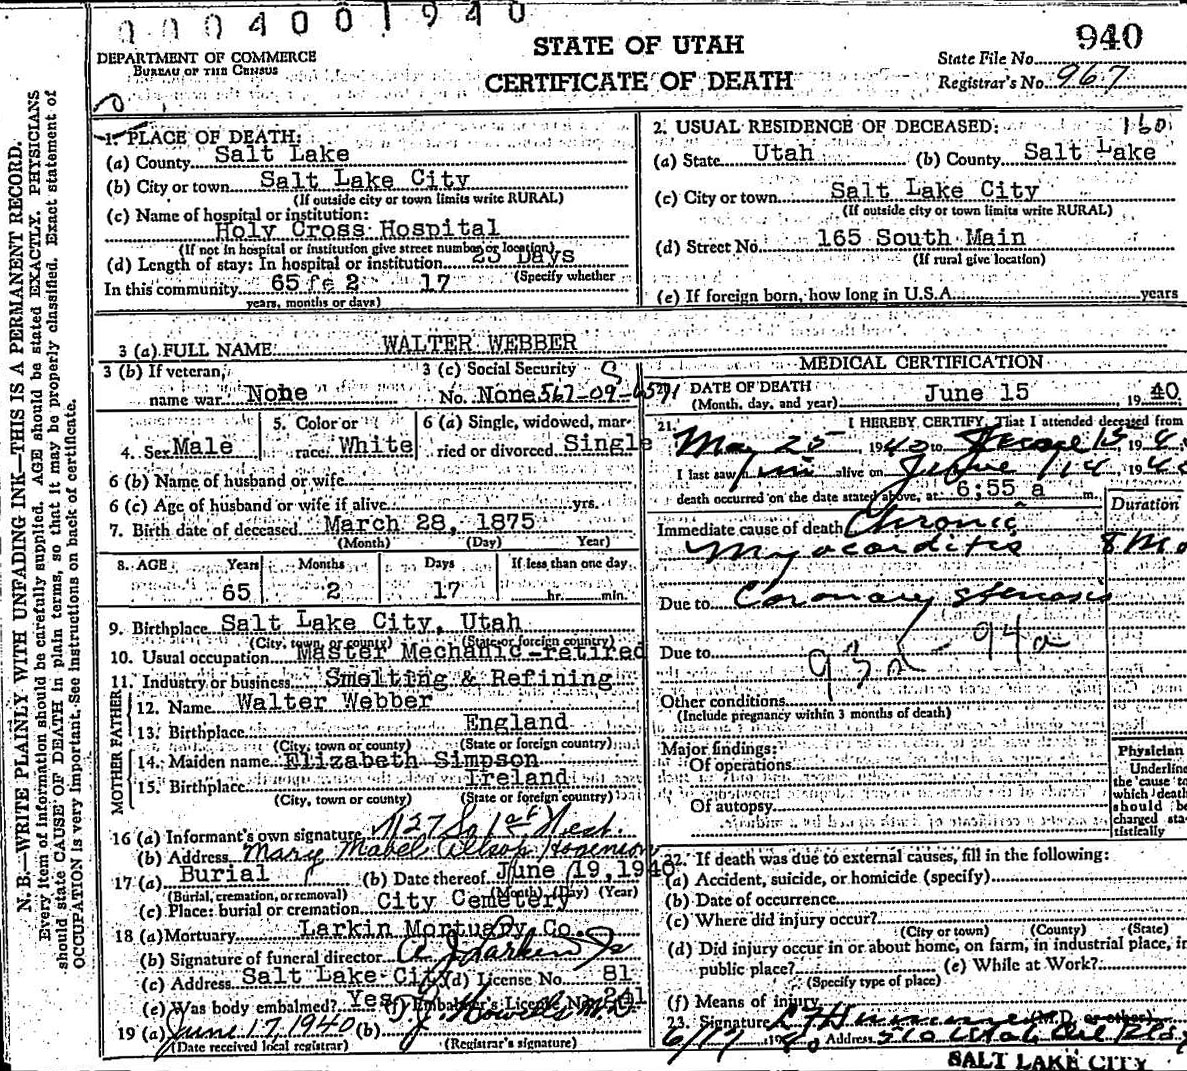 0004001940
STATE OF UTAH
CERTIFICATE OF DEATH
DEPARTMENT OF COMMERCE
BUREAU OF THE CENSUS
940
State File No.
Registrar's No. 967
N. B.—WRITE PLAINLY WITH UNFADING INK—THIS IS A PERMANENT RECORD.
Every item of information should be carefully supplied. AGE should be stated EXACTLY. PHYSICIANS
should state CAUSE OF DEATH in plain terms, so that it may be properly classified. Exact statement of
OCCUPATION is very important. See instructions on back of certificate.
1. PLACE OF DEATH:
(a) County Salt Lake
(b) City or town Salt Lake City
(If outside city or town limits write RURAL)
(c) Name of hospital or institution:
Holy Cross Hospital
(If not in hospital or institution give street number or location)
(d) Length of stay: In hospital or institution 23 Days
(Specify whether
In this community 65 2 17
years, months or days)
2. USUAL RESIDENCE OF DECEASED: 160
(a) State Utah (b) County Salt Lake
(c) City or town Salt Lake City
(If outside city or town limits write RURAL)
(d) Street No. 165 South Main
(If rural give location)
(e) If foreign born, how long in U.S.A. years
3 (a) FULL NAME WALTER WEBBER
3 (b) If veteran, name war None
3 (c) Social Security No. None 567-09-6571
4. Sex Male
5. Color or race White
6 (a) Single, widowed, married or divorced Single
6 (b) Name of husband or wife
6 (c) Age of husband or wife if alive yrs.
7. Birth date of deceased March 28, 1875
(Month) (Day) Year)
8. AGE Years Months Days If less than one day
65 2 17 hr. min.
9. Birthplace Salt Lake City, Utah
(City, town, or county) (State or foreign country)
10. Usual occupation Master Mechanic-retired
11. Industry or business Smelting & Refining
FATHER
12. Name Walter Webber
13. Birthplace England
(City, town or county) (State or foreign country)
MOTHER
14. Maiden name Elizabeth Simpson
15. Birthplace Ireland
(City, town or county) (State or foreign country)
16 (a) Informant's own signature 1127 So 1st West.
(b) Address Mary Mabel Alsop
17 (a) Burial (b) Date thereof June 19, 1940
(Burial, cremation, or removal) (Month) (Day) (Year)
(c) Place: burial or cremation City Cemetery
18 (a) Mortuary Larkin Mortuary Co.
(b) Signature of funeral director A J Larkin Jr
(c) Address Salt Lake City (d) License No. 81
(e) Was body embalmed? Yes (f) Embalmer's License No. 241
19 (a) June 17, 1940 (b) Howells M.D.
(Date received local registrar) (Registrar's signature)
MEDICAL CERTIFICATION
DATE OF DEATH June 15 1940
(Month, day, and year)
21. I HEREBY CERTIFY, That I attended deceased from
May 25 1940 to June 15 19
I last saw him alive on June 14 1940
death occurred on the date stated above, at 6:55 a m.
Duration
Immediate cause of death Chronic
Myocarditis 8 Mo
Due to Coronary Stenosis
Due to 94a
Other conditions
(Include pregnancy within 3 months of death)
Major findings:
Of operations
Of autopsy
Physician
Underline
the cause to
which death
should be
charged sta-
tistically
22. If death was due to external causes, fill in the following:
(a) Accident, suicide, or homicide (specify)
(b) Date of occurrence
(c) Where did injury occur?
(City or town) (County) (State)
(d) Did injury occur in or about home, on farm, in industrial place, in
public place? (e) While at Work?
(Specify type of place)
(f) Means of injury
23. Signature (M.D. or other)
6/17 1940 Address
SALT LAKE CITY